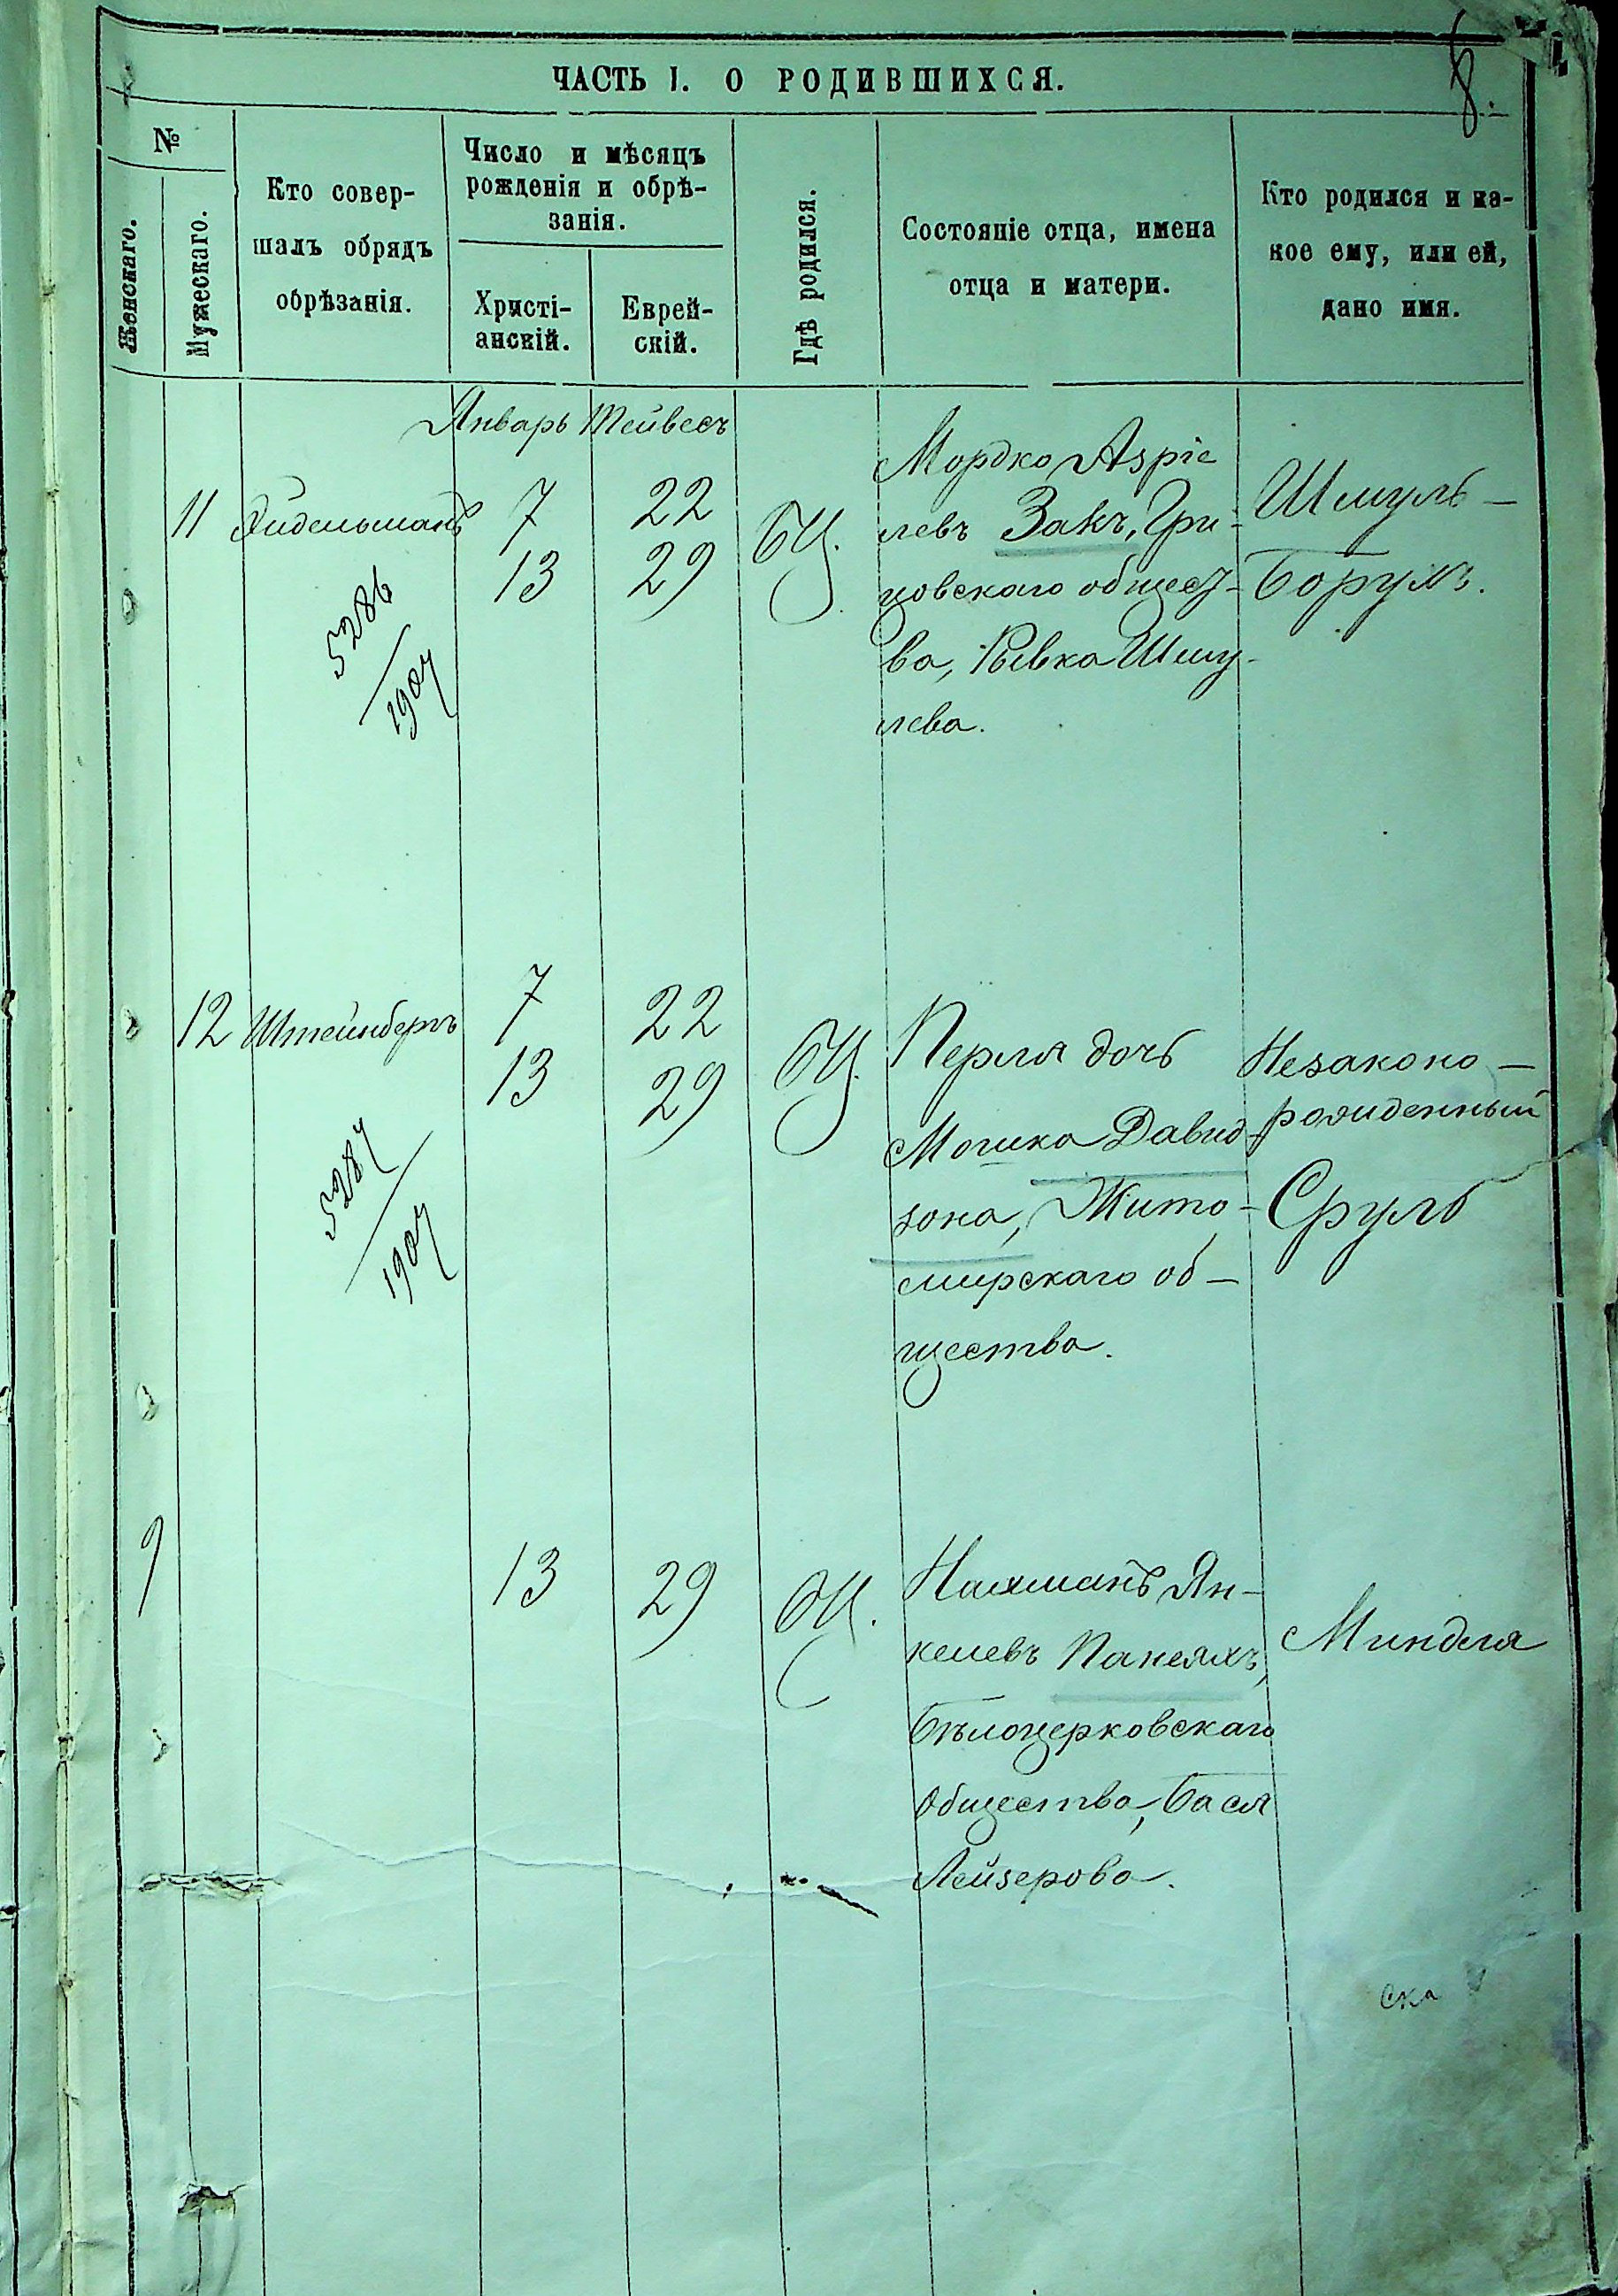 8.
ЧАСТЬ I. О РОДИВШИХСЯ.
№
Женскаго.
Мужескаго.
Кто совер-
шалъ обрядъ
обрѣзанія.
Число и мѣсяцъ
рожденія и обрѣ-
занія.
Христі-
анскій.
Еврей-
скій.
Гдѣ родился.
Состояніе отца, имена
отца и матери.
Кто родился и ка-
кое ему, или ей,
дано имя.
Январь Тейвесъ
11
7 22
13 29
БЦ.
Мордко Азріе
левъ Закъ, Гри-
цовскаго общест-
ва, Ривка Шму-
лева.
Шмуль-
Борухъ.
5286
1907
12 Штейнбергъ
7 22
13 29
БЦ.
Перля дочь
Мошка Давид-
зона, Жито-
мирскаго об-
щества.
Незаконо-
рожденный
Сруль
5287
1907
13 29
БЦ.
Нахманъ Ян-
келевъ Панеяхъ,
Бѣлоцерковскаго
общества, Бася
Лейзерова.
Миндля
ска